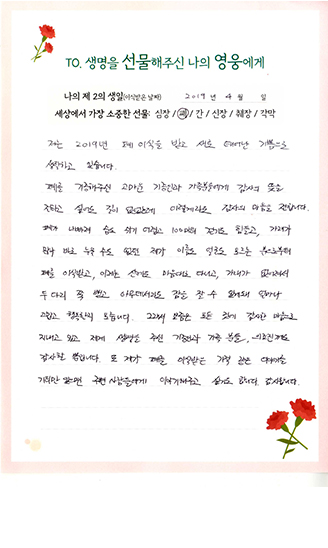 TO. 생명을 선물해주신 나의 영웅에게
나의 제 2의 생일(이식받은 날짜) 2019 년 4 월 일
세상에서 가장 소중한 선물: 심장 / 폐 / 간 / 신장 / 췌장 / 각막
저는 2019년 폐 이식을 받고 새로 태어난 기쁨으로
생활하고 있습니다.
폐를 기증해주신 고마운 기증인과 가족분들에게 감사의 뜻을
전하고 싶어도 길이 없었는데 이렇게라도 감사의 마음을 전합니다.
제가 나빠져 숨도 쉬기 어렵고 100미터 걷기도 힘들고, 가래가
바로 누울 수도 없던 제가 이름도 얼굴도 모르는 분으로부터
폐를 이식받고, 이제는 산책도 마음대로 다니고, 가래가 없어져서
두 다리 쭉 뻗고 아무데서라도 잠을 잘 수 있게돼 얼마나
행복한지 모릅니다. 그래서 요즘은 모든 것에 감사한 마음으로
지내고 있고 제게 생명을 주신 기증자와 가족 분들, 의료진께도
감사할 뿐입니다. 또 제가 폐를 이식받은 기적 같은 이야기를
주변 사람들에게 이야기해주고 싶기도 합니다. 감사합니다.